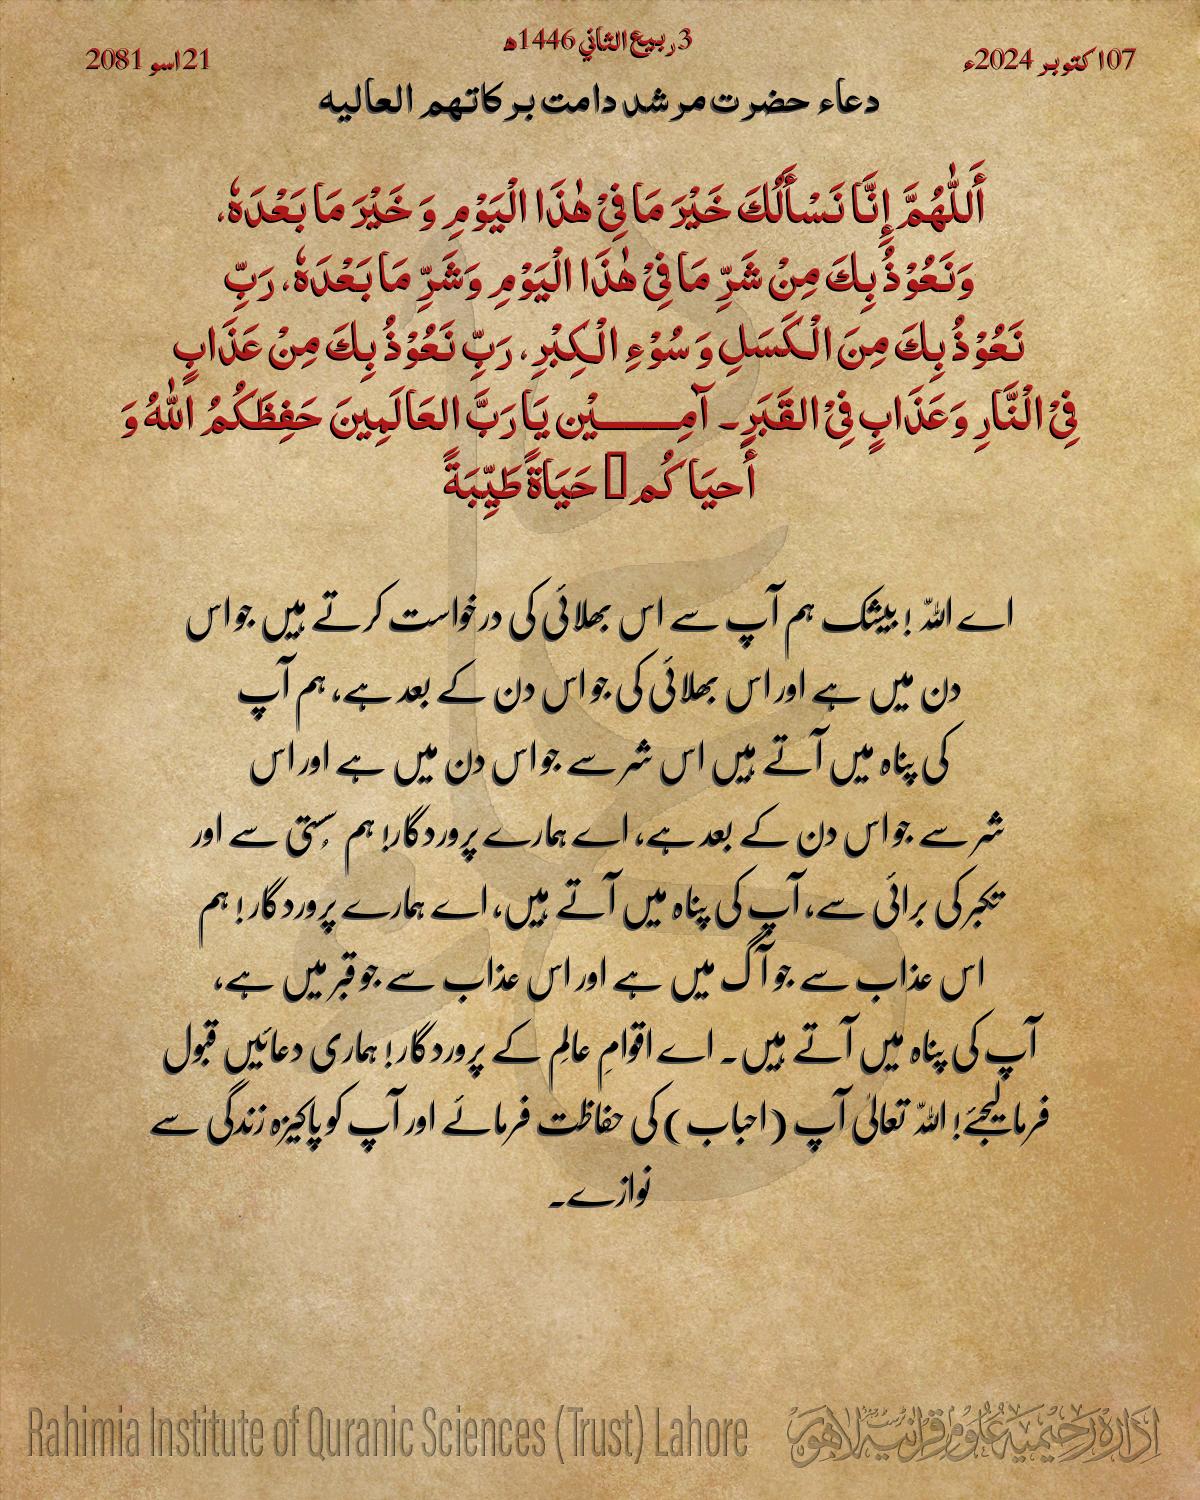 3 ربیع الثاني 1446ھ
07 اکتوبر 2024ء
21 اسو 2081
دعاء حضرت مرشد دامت برکاتہم العالیہ
أَللّٰهُمَّ إِنَّا نَسْأَلُكَ خَيْرَ مَا فِيْ هٰذَا الْيَوْمِ وَ خَيْرَ مَا بَعْدَهٗ،
وَنَعُوْذُ بِكَ مِنْ شَرِّ مَا فِيْ هٰذَا الْيَوْمِ وَشَرِّ مَا بَعْدَهٗ، رَبِّ
نَعُوْذُ بِكَ مِنَ الْكَسَلِ وَ سُوْءِ الْكِبْرِ، رَبِّ نَعُوْذُ بِكَ مِنْ عَذَابٍ
فِيْ الْنَّارِ وَعَذَابٍ فِيْ القَبَرِ۔ آمِــــــيْن يَا رَبَّ العَالَمِينَ حَفِظَكُمُ اللّٰهُ وَ
أَحيَاكُم حَيَاةً طَيِّبَةً
اے اللہ! بیشک ہم آپ سے اس بھلائی کی درخواست کرتے ہیں جو اس
دن میں ہے اور اس بھلائی کی جو اس دن کے بعد ہے، ہم آپ
کی پناہ میں آتے ہیں اس شر سے جو اس دن میں ہے اور اس
شر سے جو اس دن کے بعد ہے، اے ہمارے پروردگار! ہم سُستی سے اور
تکبر کی برائی سے، آپ کی پناہ میں آتے ہیں، اے ہمارے پروردگار! ہم
اس عذاب سے جو آگ میں ہے اور اس عذاب سے جو قبر میں ہے،
آپ کی پناہ میں آتے ہیں۔ اے اقوامِ عالِم کے پروردگار! ہماری دعائیں قبول
فرما لیجئے! اللہ تعالیٰ آپ (احباب) کی حفاظت فرمائے اور آپ کو پاکیزہ زندگی سے
نوازے۔
Rahimia Institute of Quranic Sciences (Trust) Lahore
ادارہ رحیمیہ علوم قرآنیہ ٹرسٹ لاہور